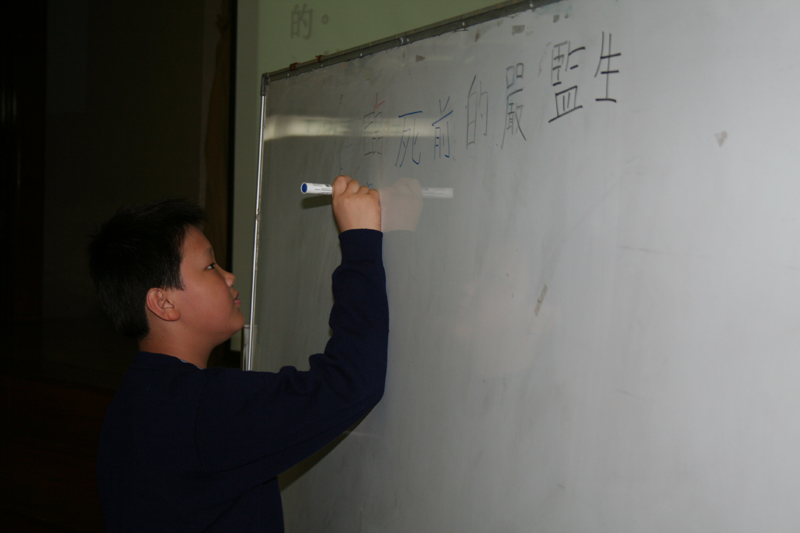 的。
死前的嚴監生